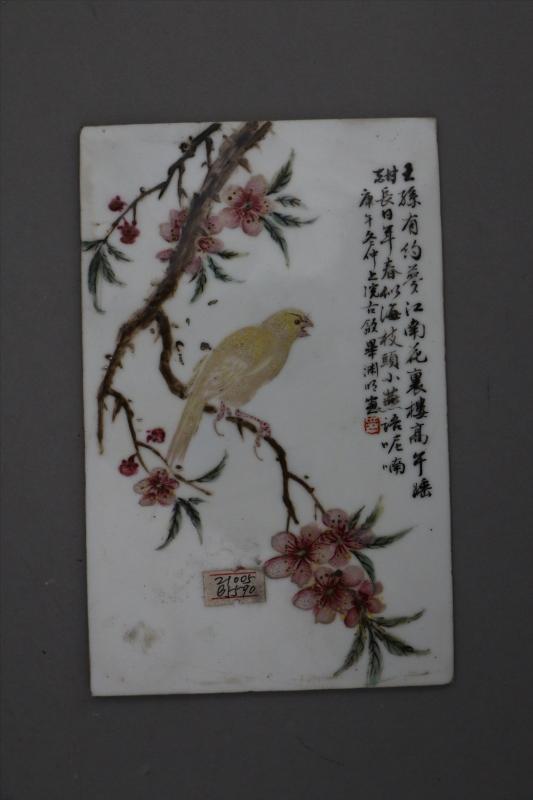 王孫有約夢江南花裏樓高午睡
甜長日年春似海枝頭小燕語呢喃
庚午冬仲上浣古歙畢淵明畫
21005
B1590